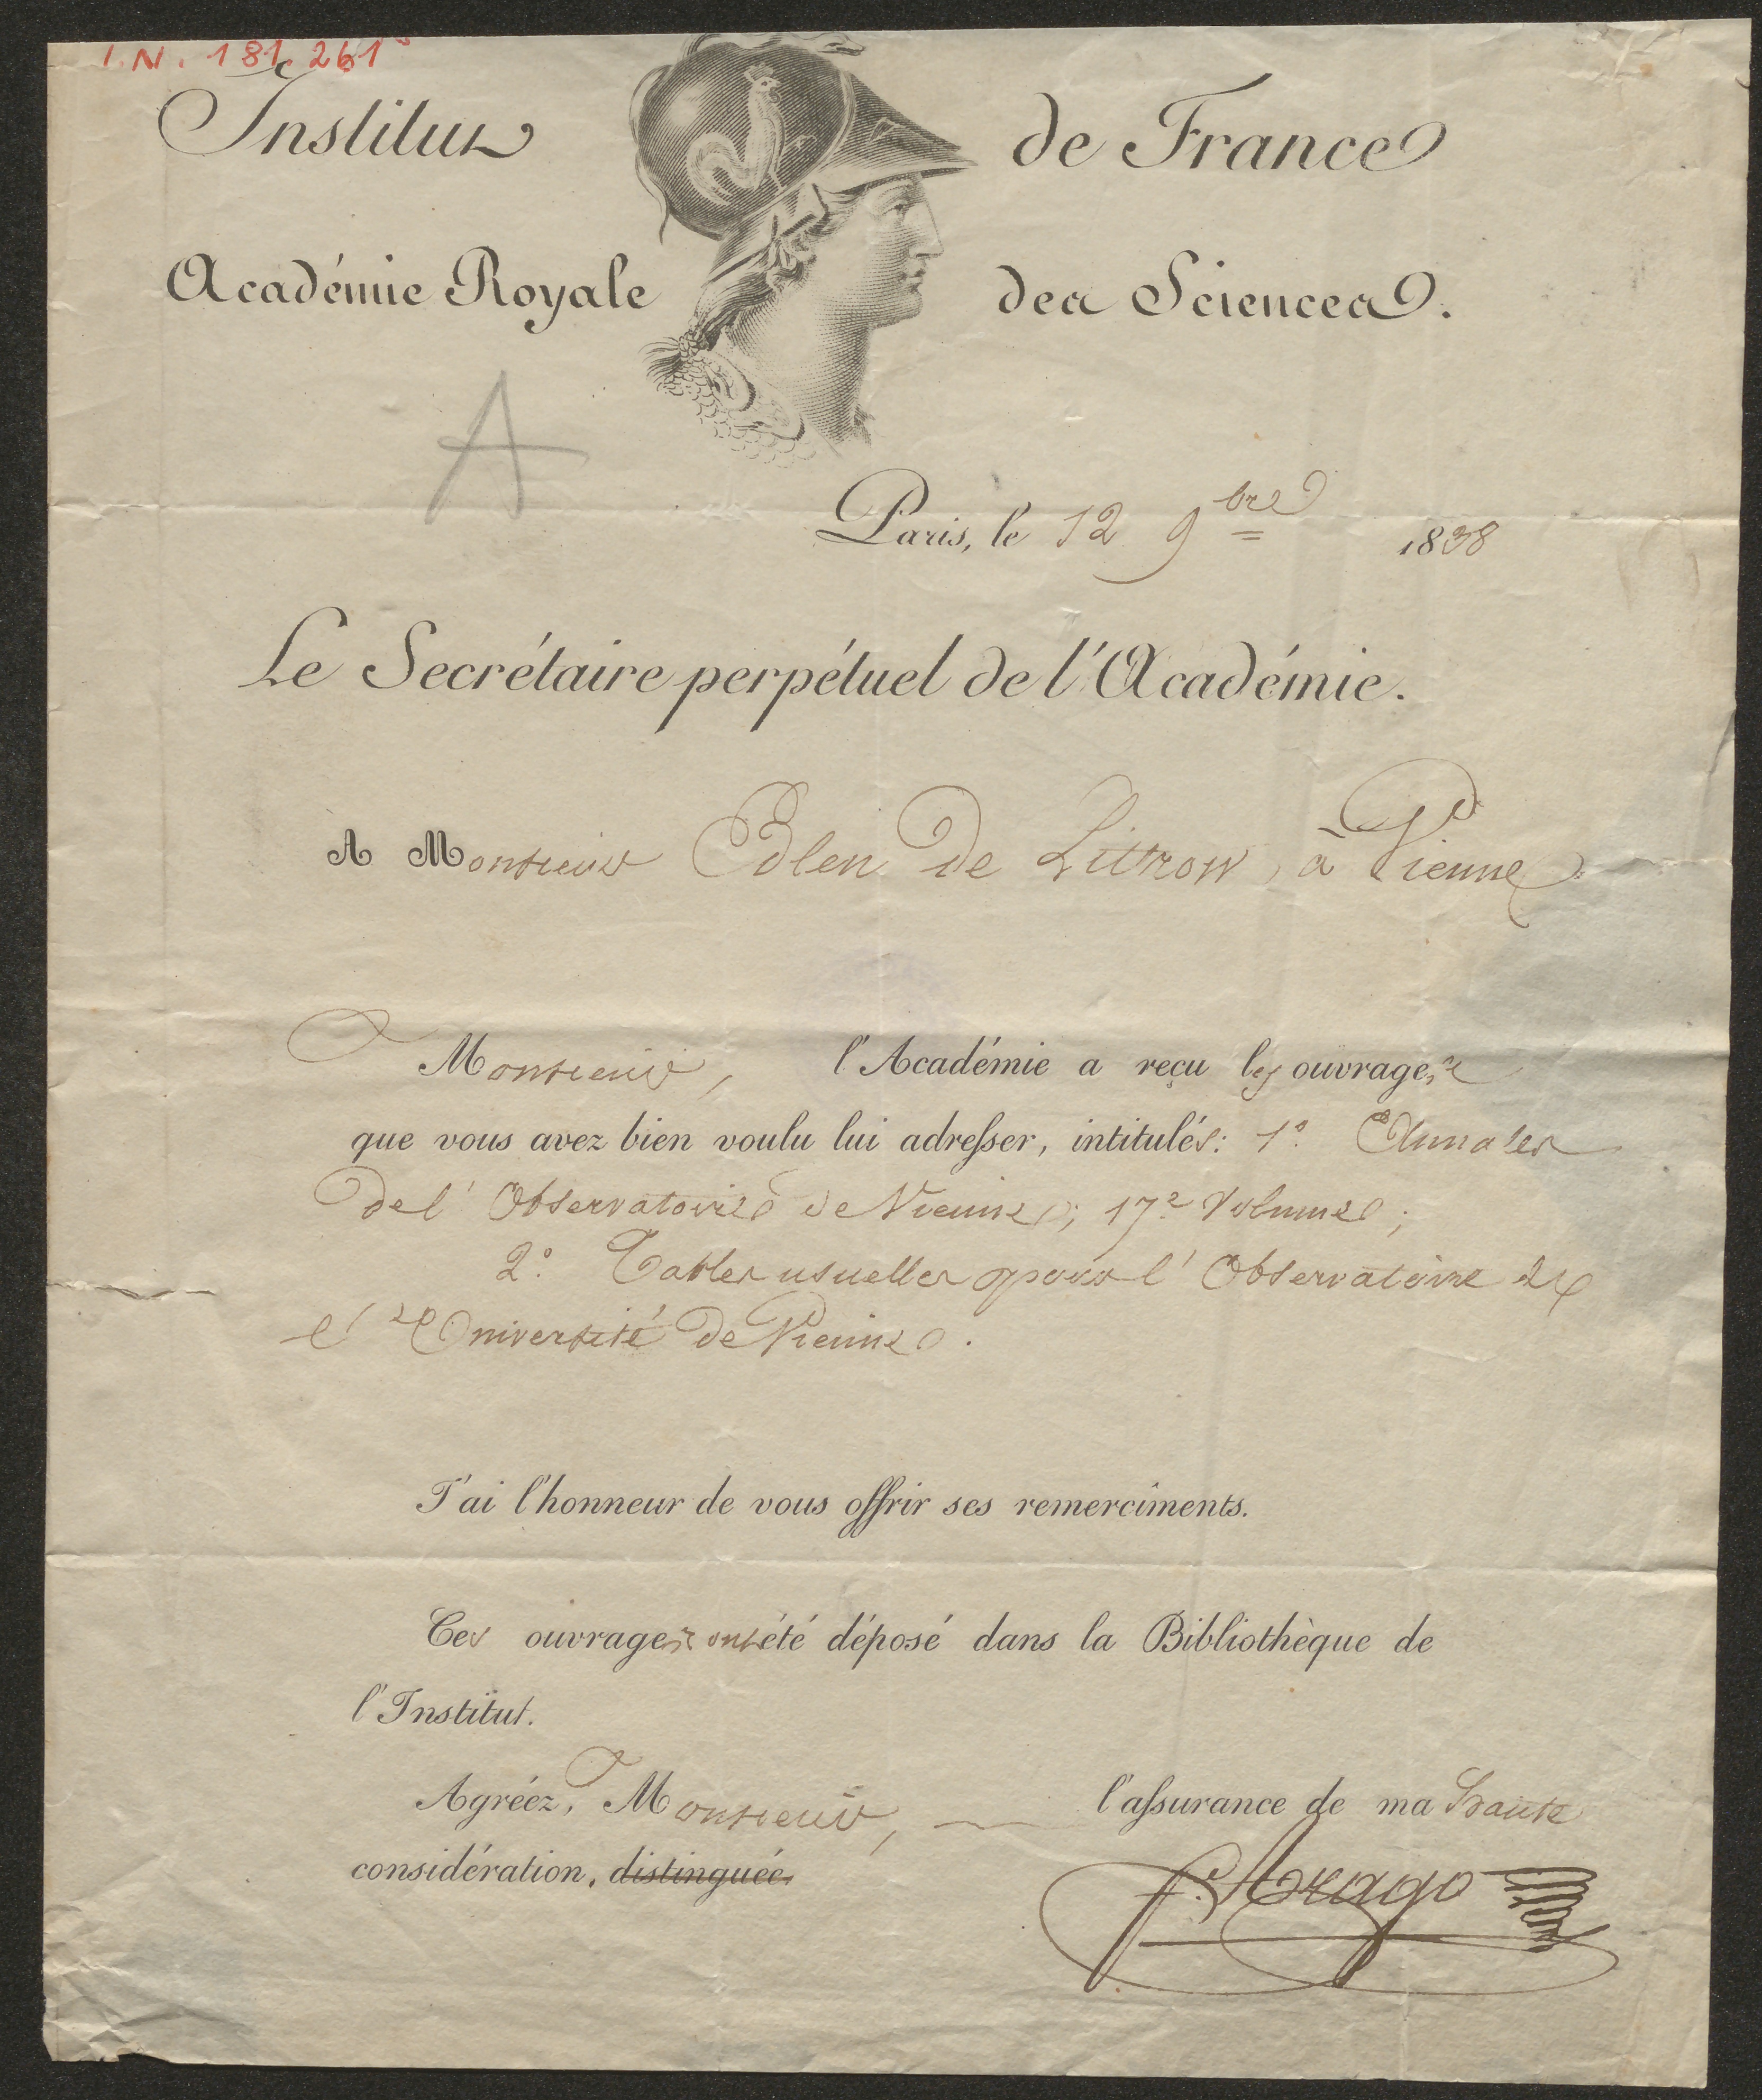 I.N. 181.261
Institut de France
Académie Royale des Sciences.
A
Paris, le 12 9bre 1838
Le Secrétaire perpétuel de l'Académie.
A Monsieur Edlen de Littrow, à Vienne
Monsieur, l'Académie a reçu les ouvrages
que vous avez bien voulu lui adresser, intitulés: 1° Annales
de l'Observatoire de Vienne; 17e Volume;
2° Tables usuelles pour l'Observatoire de
l'Université de Vienne.
J'ai l'honneur de vous offrir ses remercîments.
Ces ouvrages ont été déposé dans la Bibliothèque de
l'Institut.
Agréez, Monsieur, l'assurance de ma haute
considération, distinguée.
F. Arago